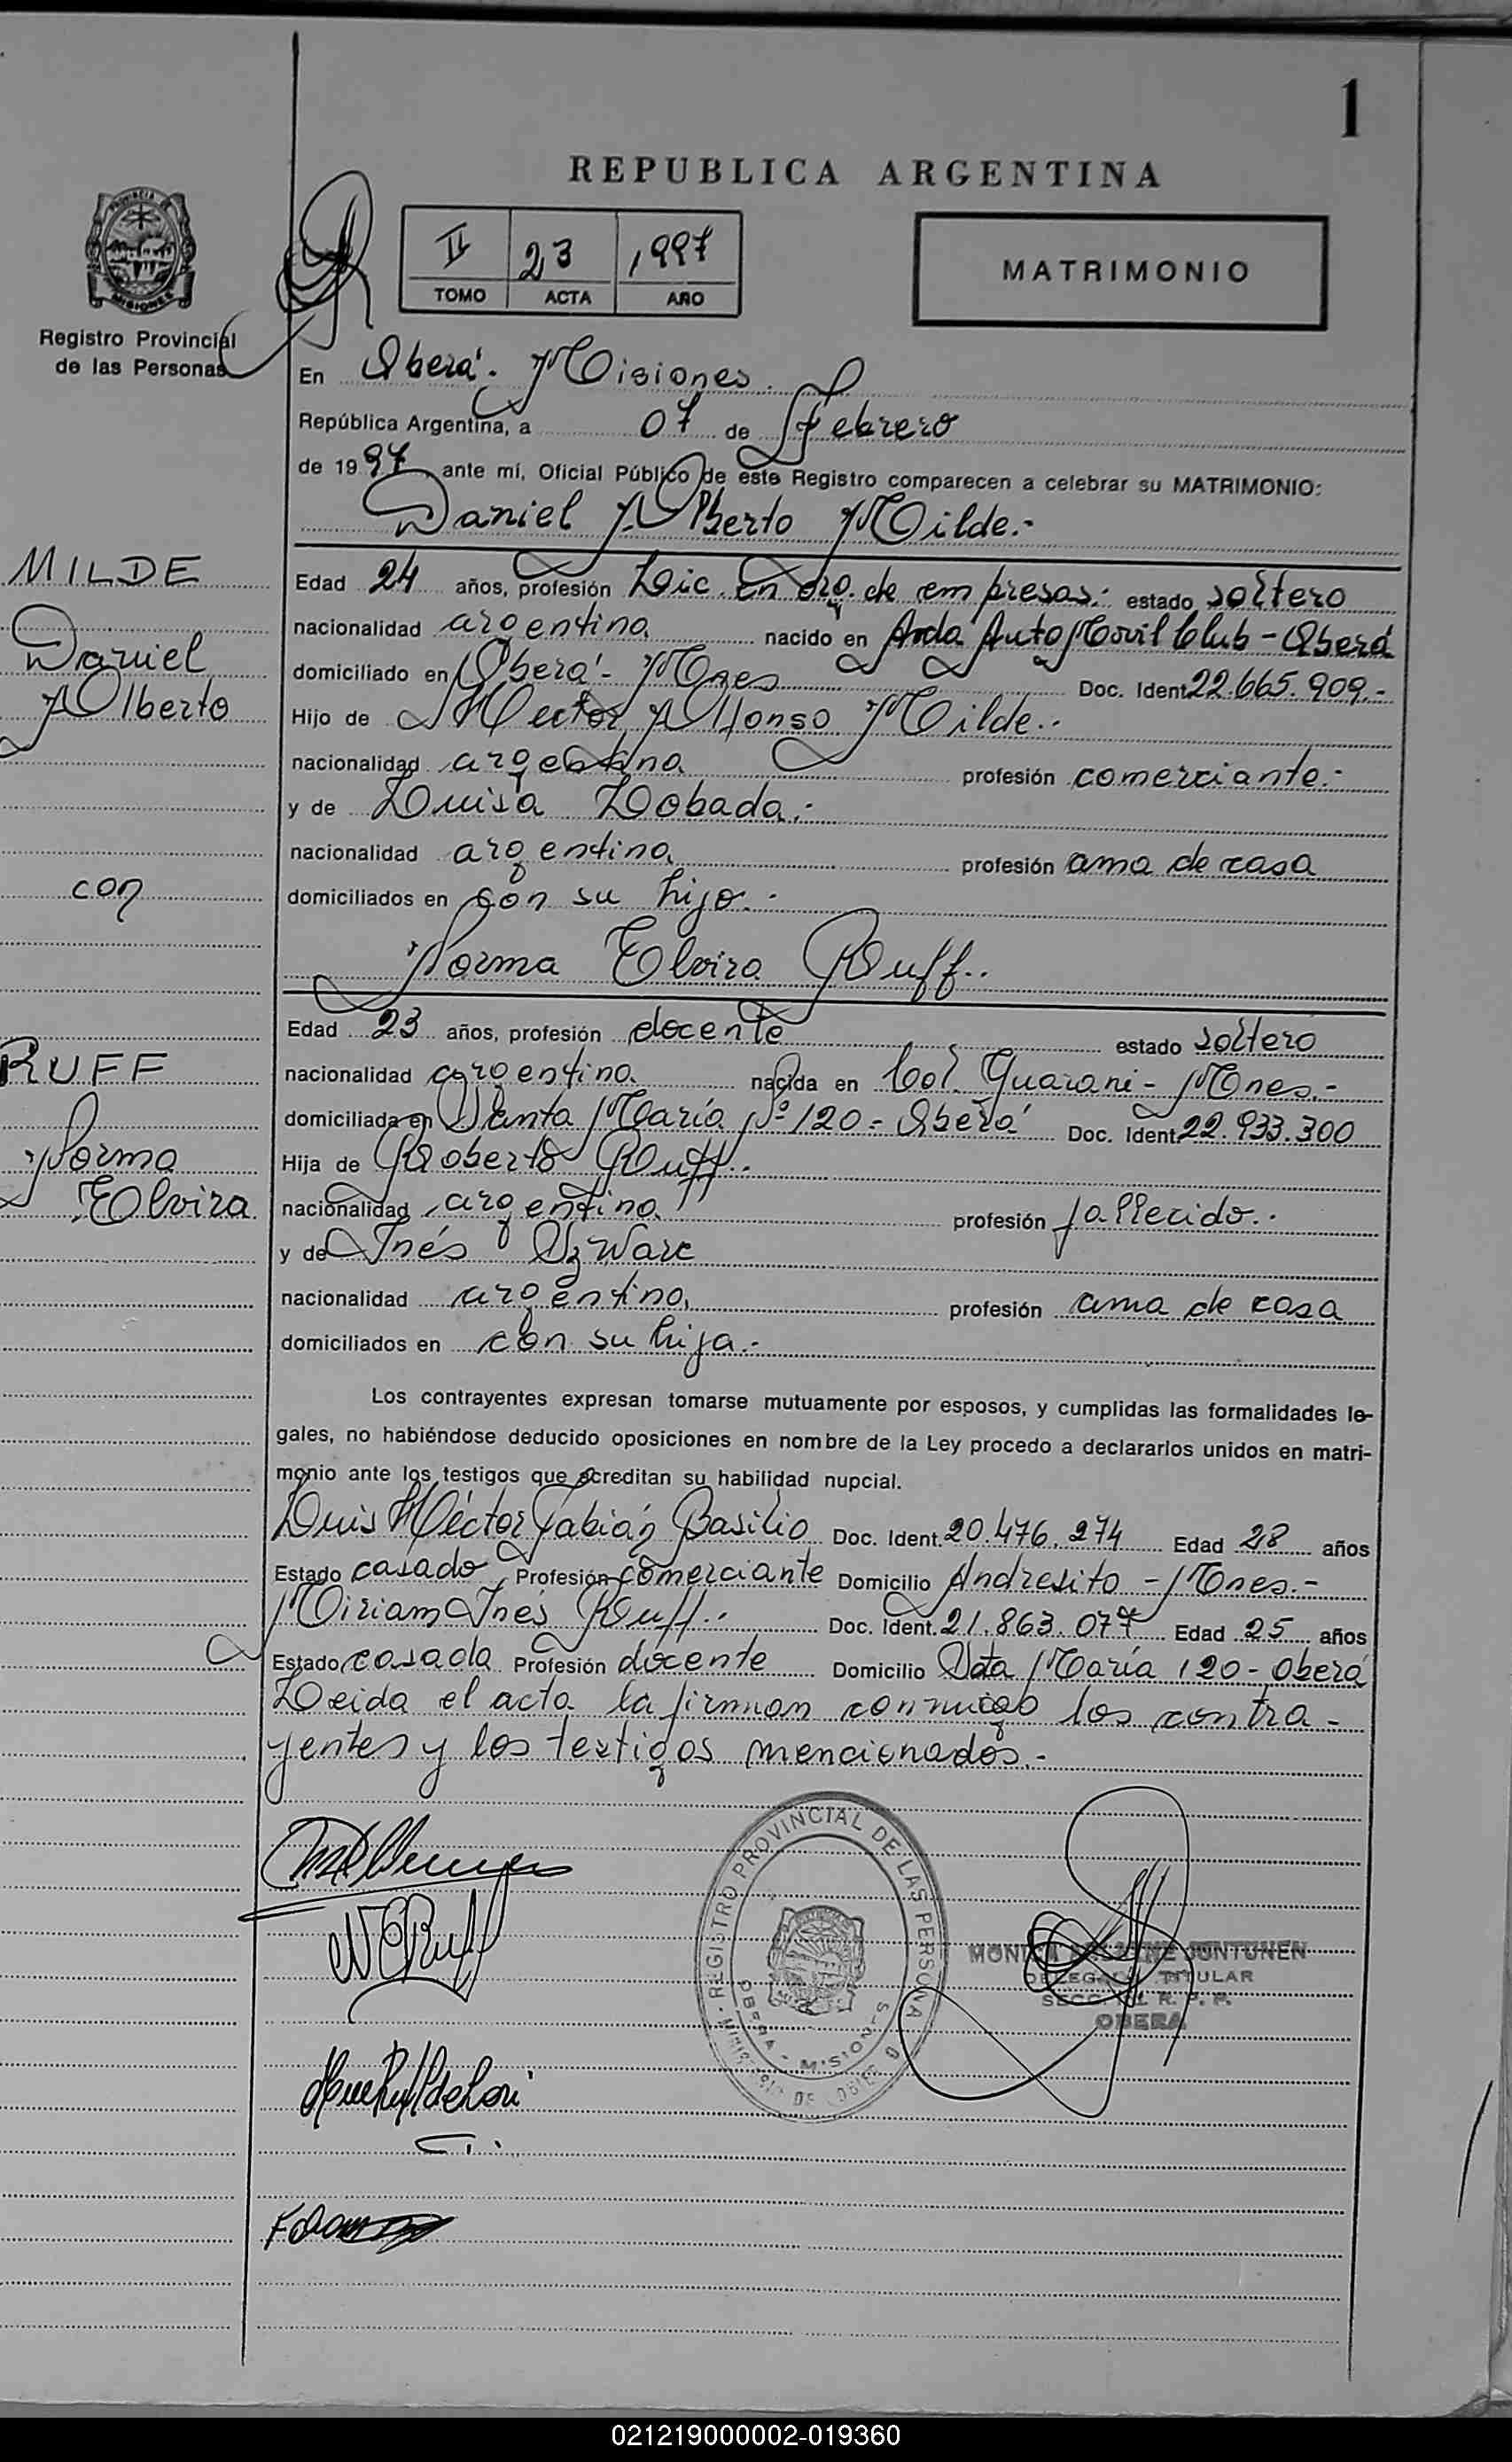 1
REPUBLICA ARGENTINA
II 23 1997
TOMO ACTA AÑO
MATRIMONIO
Registro Provincial
de las Personas
En Oberá. Misiones.
República Argentina, a 07 de Febrero
de 1997 ante mí, Oficial Público de este Registro comparecen a celebrar su MATRIMONIO:
Daniel Alberto Milde.-
MILDE
Daniel
Alberto
con
RUFF
Norma
Elvira
Edad 24 años, profesión Lic. en org. de empresas.- estado soltero
nacionalidad argentina nacido en Avda Automovil Club - Oberá
domiciliado en Oberá - Mnes Doc. Ident 22.665.909.-
Hijo de Hector Alfonso Milde.-
nacionalidad argentina profesión comerciante.-
y de Luisa Lobada.-
nacionalidad argentina profesión ama de casa
domiciliados en con su hijo.-
Norma Elvira Ruff..
Edad 23 años, profesión docente estado soltero
nacionalidad argentina nacida en Col. Guarani - Mnes.-
domiciliada en Santa María Nº 120 - Oberá Doc. Ident 22.933.300
Hija de Roberto Ruff..
nacionalidad argentina profesión fallecido..
y de Inés
nacionalidad argentina profesión ama de casa
domiciliados en con su hija.-
Los contrayentes expresan tomarse mutuamente por esposos, y cumplidas las formalidades le-
gales, no habiéndose deducido oposiciones en nombre de la Ley procedo a declararlos unidos en matri-
monio ante los testigos que acreditan su habilidad nupcial.
Luis Héctor Fabián Basilio Doc. Ident. 20.476.274 Edad 28 años
Estado casado Profesión comerciante Domicilio Andresito - Mnes.-
Miriam Inés Ruff.. Doc. Ident. 21.863.077 Edad 25 años
Estado casada Profesión docente Domicilio Sata María 120 - Oberá
Leida el acta la firman conmigo los contra-
yentes y los testigos mencionados.-
REGISTRO PROVINCIAL DE LAS PERSONA
OBERA - MISIONES
NERuff
MONICA JUNTUNEN
DELEGADA TITULAR
OBERA
021219000002-019360